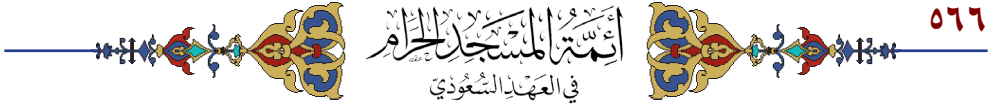 ٥٦٦
أَئِمَّةُ المَسْجِدِ الحَرَامِ
فِي العَهْدِ السُّعُودِيِّ